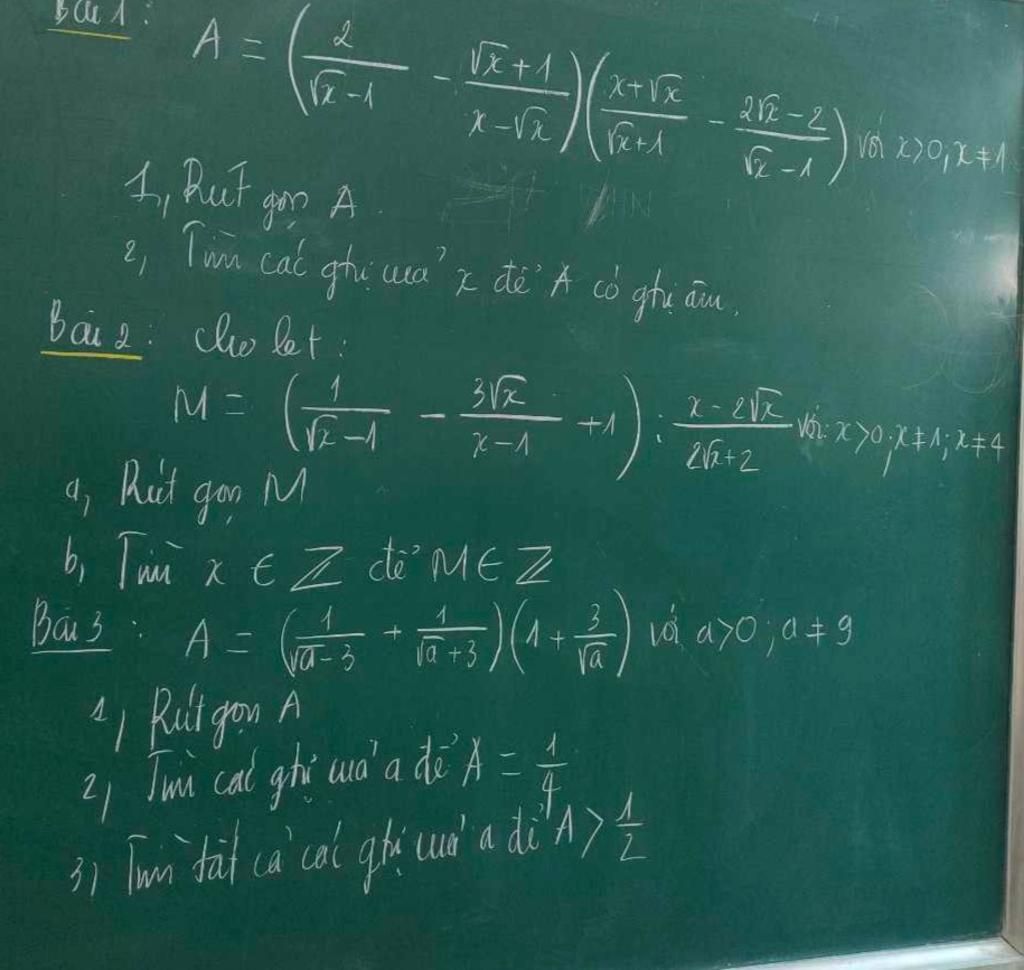 Bài 1:
A = (2/(√x-1) - (√x+1)/(x-√x))((x+√x)/(√x+1) - (2√x-2)/(√x-1)) với x>0; x≠1
1, Rút gọn A
2, Tìm các ghị của x để A có ghị âm.
Bài 2: Cho bt:
M = (1/(√x-1) - 3√x/(x-1) +1) : (x-2√x)/(2√x+2) với: x>0; x≠1; x≠4
a, Rút gọn M
b, Tìm x ∈ Z để M ∈ Z
Bài 3: A = (1/(√a-3) + 1/(√a+3))(1 + 3/√a) với a>0; a≠9
1, Rút gọn A
2, Tìm các ghị của a để A = 1/4
3, Tìm tất cả các ghị của a để A > 1/2